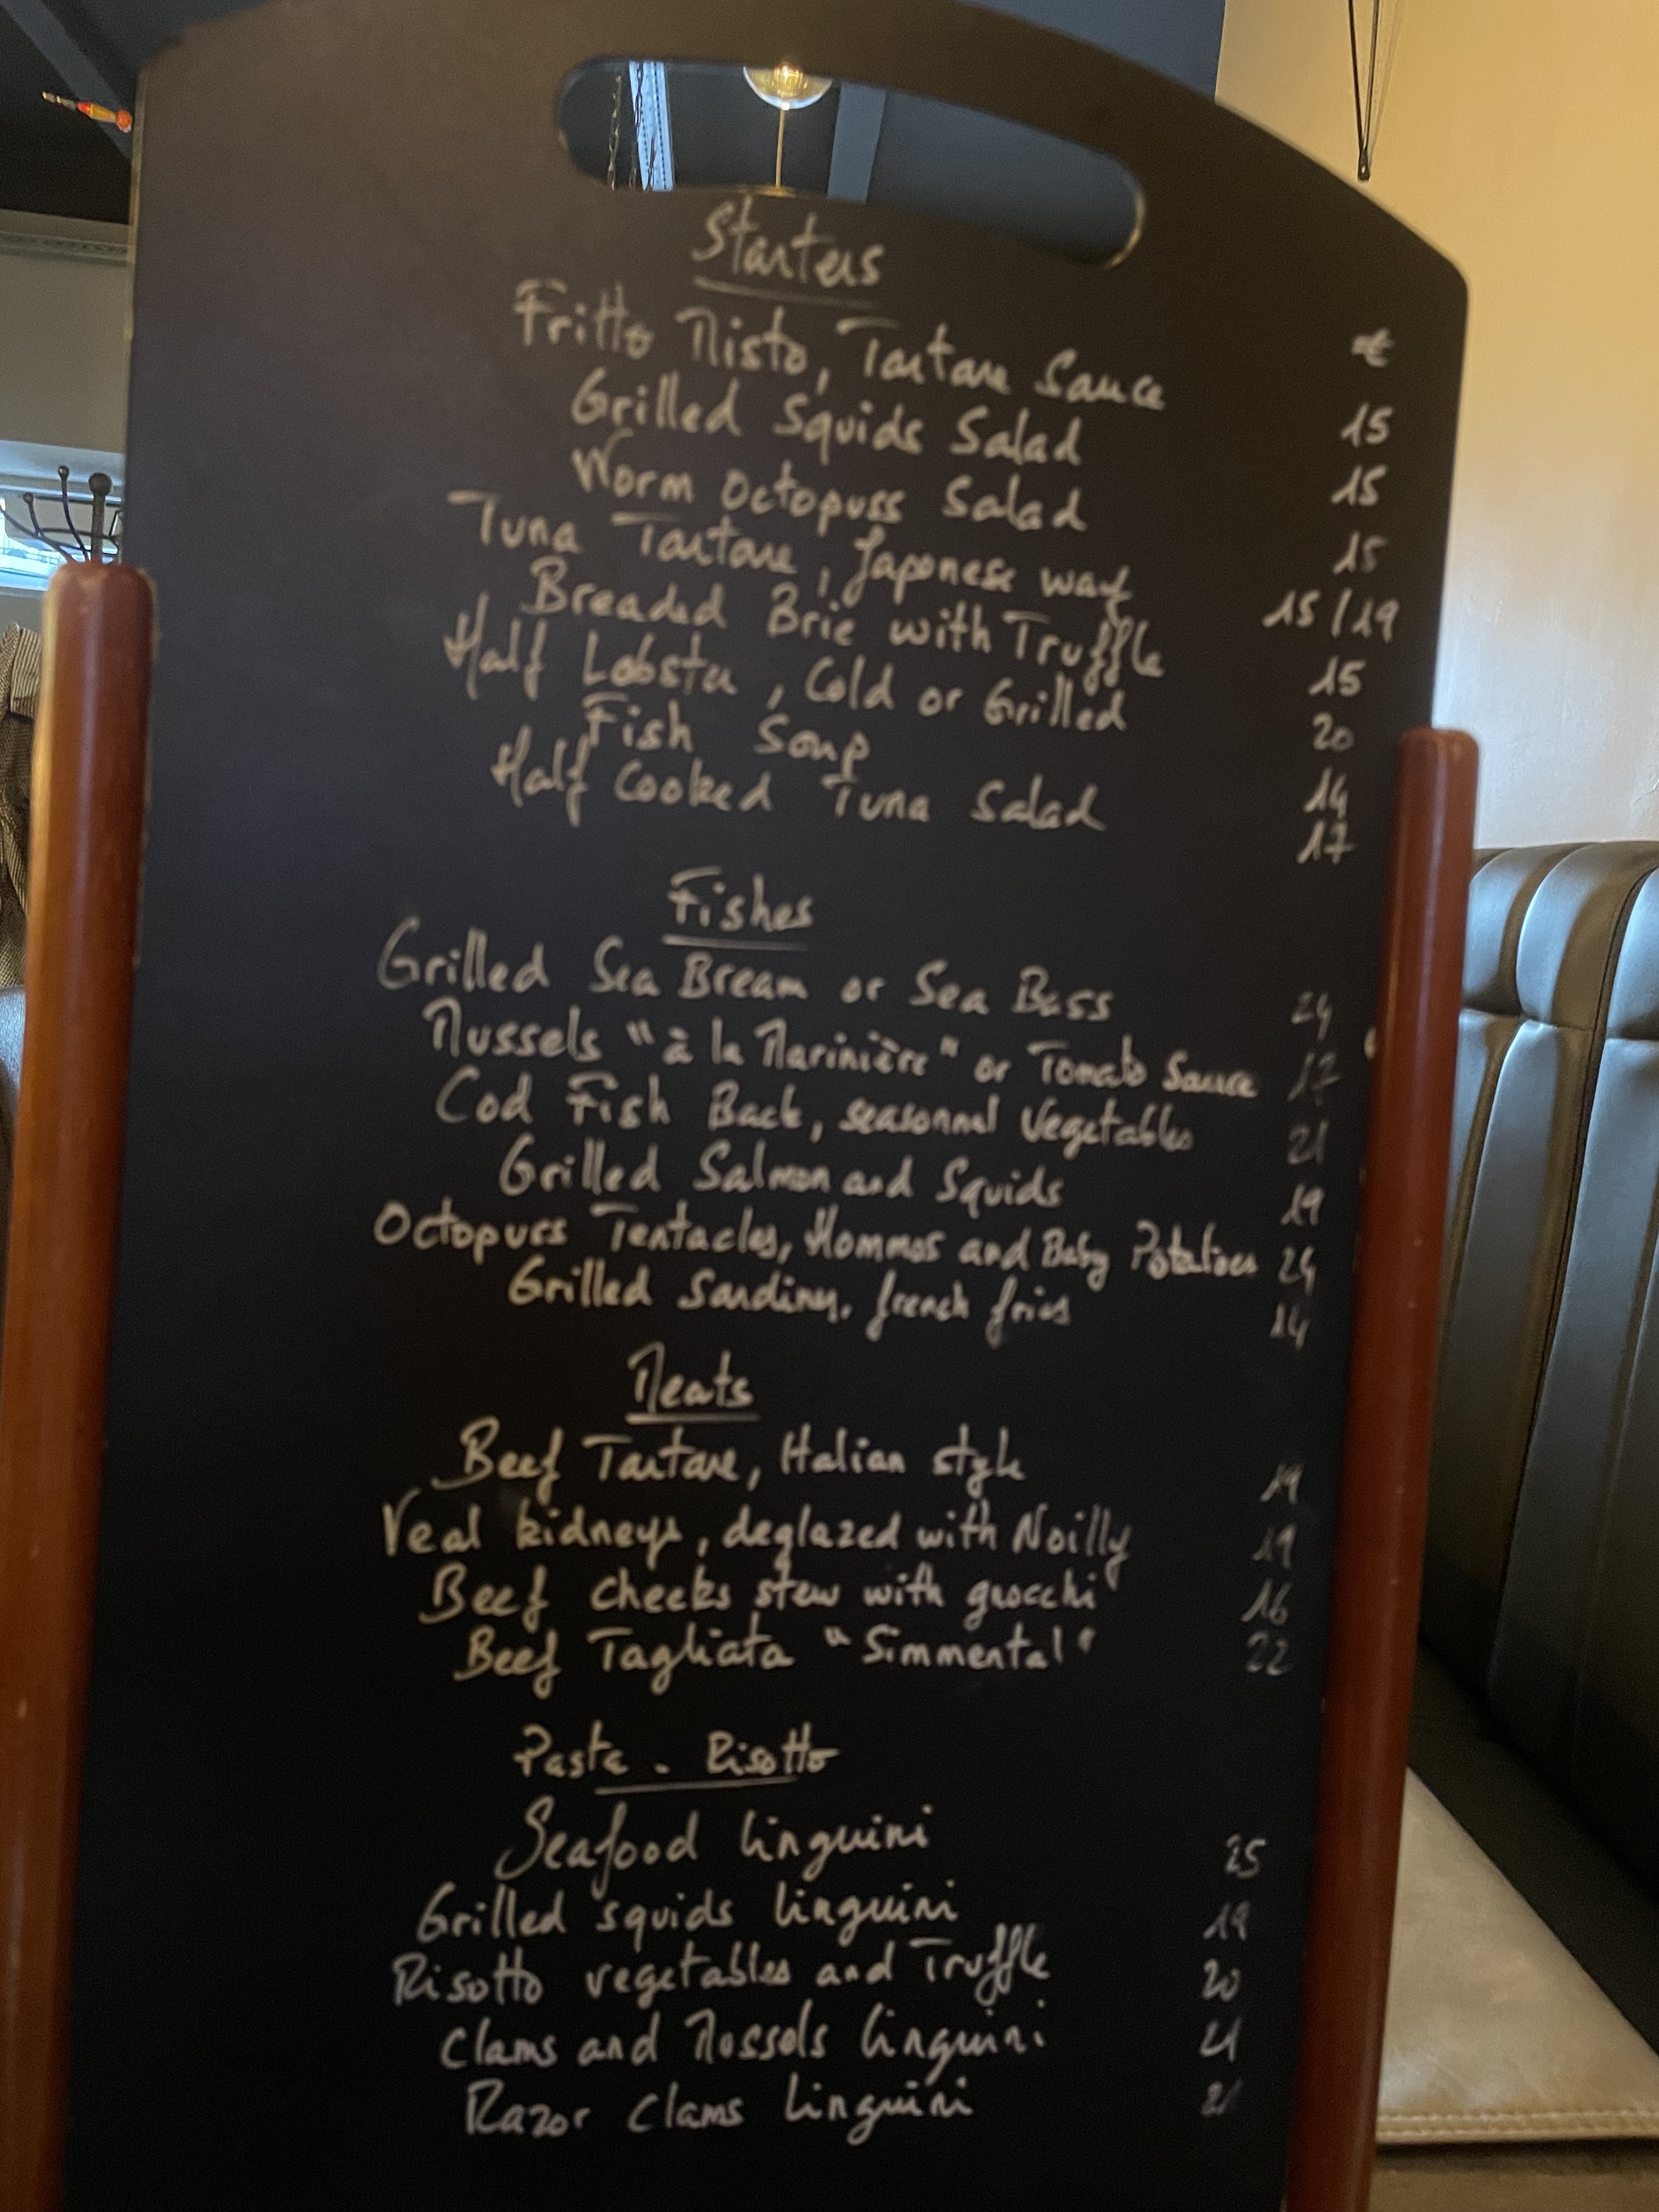 Starters
€
Fritto Misto, Tartare Sauce 15
Grilled Squids Salad 15
Worm Octopuss Salad 15
Tuna Tartare, Japonese way 15/19
Breaded Brie with Truffle 15
Half Lobster, Cold or Grilled 20
Fish Soup 14
Half Cooked Tuna Salad 17
Fishes
Grilled Sea Bream or Sea Bass 24
Mussels "à la Marinière" or Tomato Sauce 17
Cod Fish Back, seasonnal Vegetables 21
Grilled Salmon and Squids 19
Octopuss Tentacles, Hommos and Baby Potatoes 24
Grilled Sardines, french fries 14
Meats
Beef Tartare, Italian style 19
Veal kidneys, deglazed with Noilly 19
Beef cheeks stew with gnocchi 16
Beef Tagliata "Simmental" 22
Pasta - Risotto
Seafood linguini 25
Grilled squids linguini 19
Risotto vegetables and Truffle 20
Clams and Mossels linguini 21
Razor Clams linguini 21